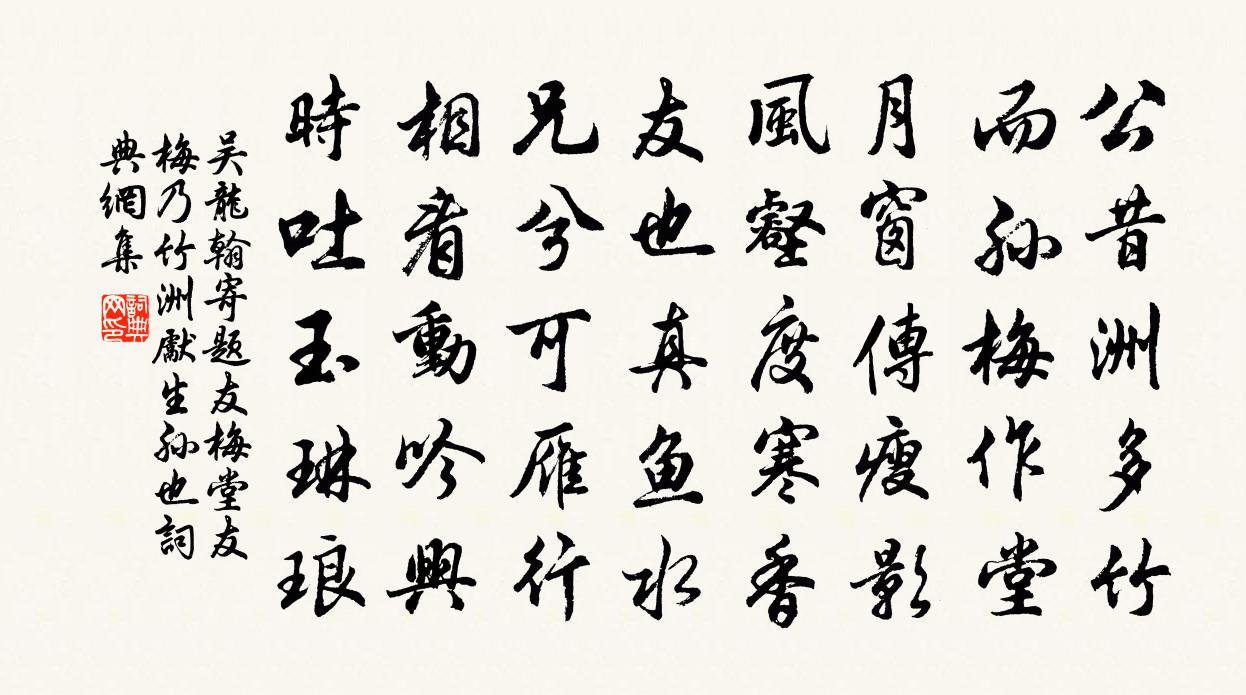 公昔洲多竹
而孙梅作堂
月窗傳瘦影
風壑度寒香
友也真鱼水
兄兮可雁行
相看動吟興
時吐玉琳琅
吴龍翰寄題友梅堂友
梅乃竹洲獻生孙也詞
典網集
詞典网印